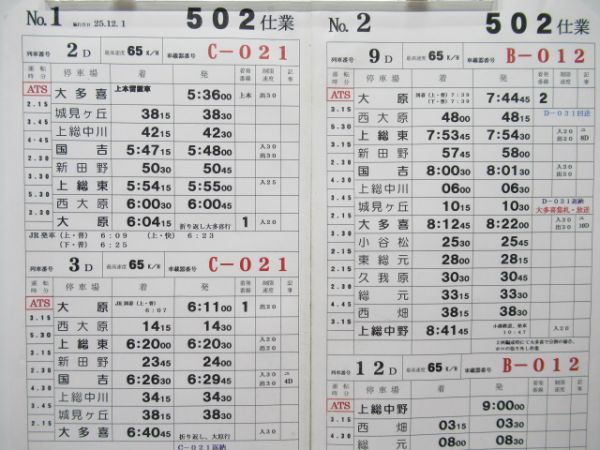 No.1 施行月日 25.12.1 502仕業
列車番号 2D 最高速度 65 K/H 車載器番号 C-021
運転時分 停車場 着 発 着発番線 制限速度 記事
ATS 大多喜 上本留置車 5:36 00 上本 出50
2.15 城見ヶ丘 38 15 38 30
3.45 上総中川 42 15 42 30 入30
4.45 国吉 5:47 15 5:48 00 出30
2.30 新田野 50 30 50 45
3.30 上総東 5:54 15 5:55 00 入25
5.30 西大原 6:00 00 6:00 30
2.30 大原 6:04 15 折り返し大多喜行 1 入20
JR発車 (上・普) 6:09 (上・快) 6:23
(下・普) 6:25
列車番号 3D 最高速度 65 K/H 車載器番号 C-021
運転時分 停車場 着 発 着発番線 制限速度 記事
ATS 大原 JR到着(上・普) 6:07 6:11 00 1 出20
3.15 西大原 14 15 14 30
5.30 上総東 6:20 00 6:20 30
新田野 23 45 24 00
2.30 国吉 6:26 30 6:29 45 入30 出30 4D
上総中川 34 15 34 30
城見ヶ丘 38 15 38 30
2.15 大多喜 6:40 45 折り返し、大原行 入30
C-021返納
No.2 502仕業
列車番号 9D 最高速度 65 K/H 車載器番号 B-012
運転時分 停車場 着 発 着発番線 制限速度 記事
ATS 大原 到着(上・普) 7:39 (下・普) 7:39 7:44 45 2
3.15 西大原 48 00 48 15 D-031回送
上総東 7:53 45 7:54 30 入20 出30 8D
新田野 57 45 58 00
国吉 8:00 30 8:01 30 入30 出30
上総中川 06 00 06 30
城見ヶ丘 10 15 10 30 D-031返納
大多喜集札・放送
大多喜 8:12 45 8:22 00 入30 出30 10D
小谷松 25 30 25 45
東総元 28 00 28 15
久我原 30 30 30 45
総元 33 15 33 30
西畑 38 15 38 30
3.15 上総中野 8:41 45 小湊鉄道、発車 10:47 入20
列車番号 12D 最高速度 65 K/H 車載器番号 B-012
運転時分 停車場 着 発 着発番線 制限速度 記事
ATS 上総中野 9:00 00
3.15 西畑 03 15 03 30
4.30 総元 08 00 08 30